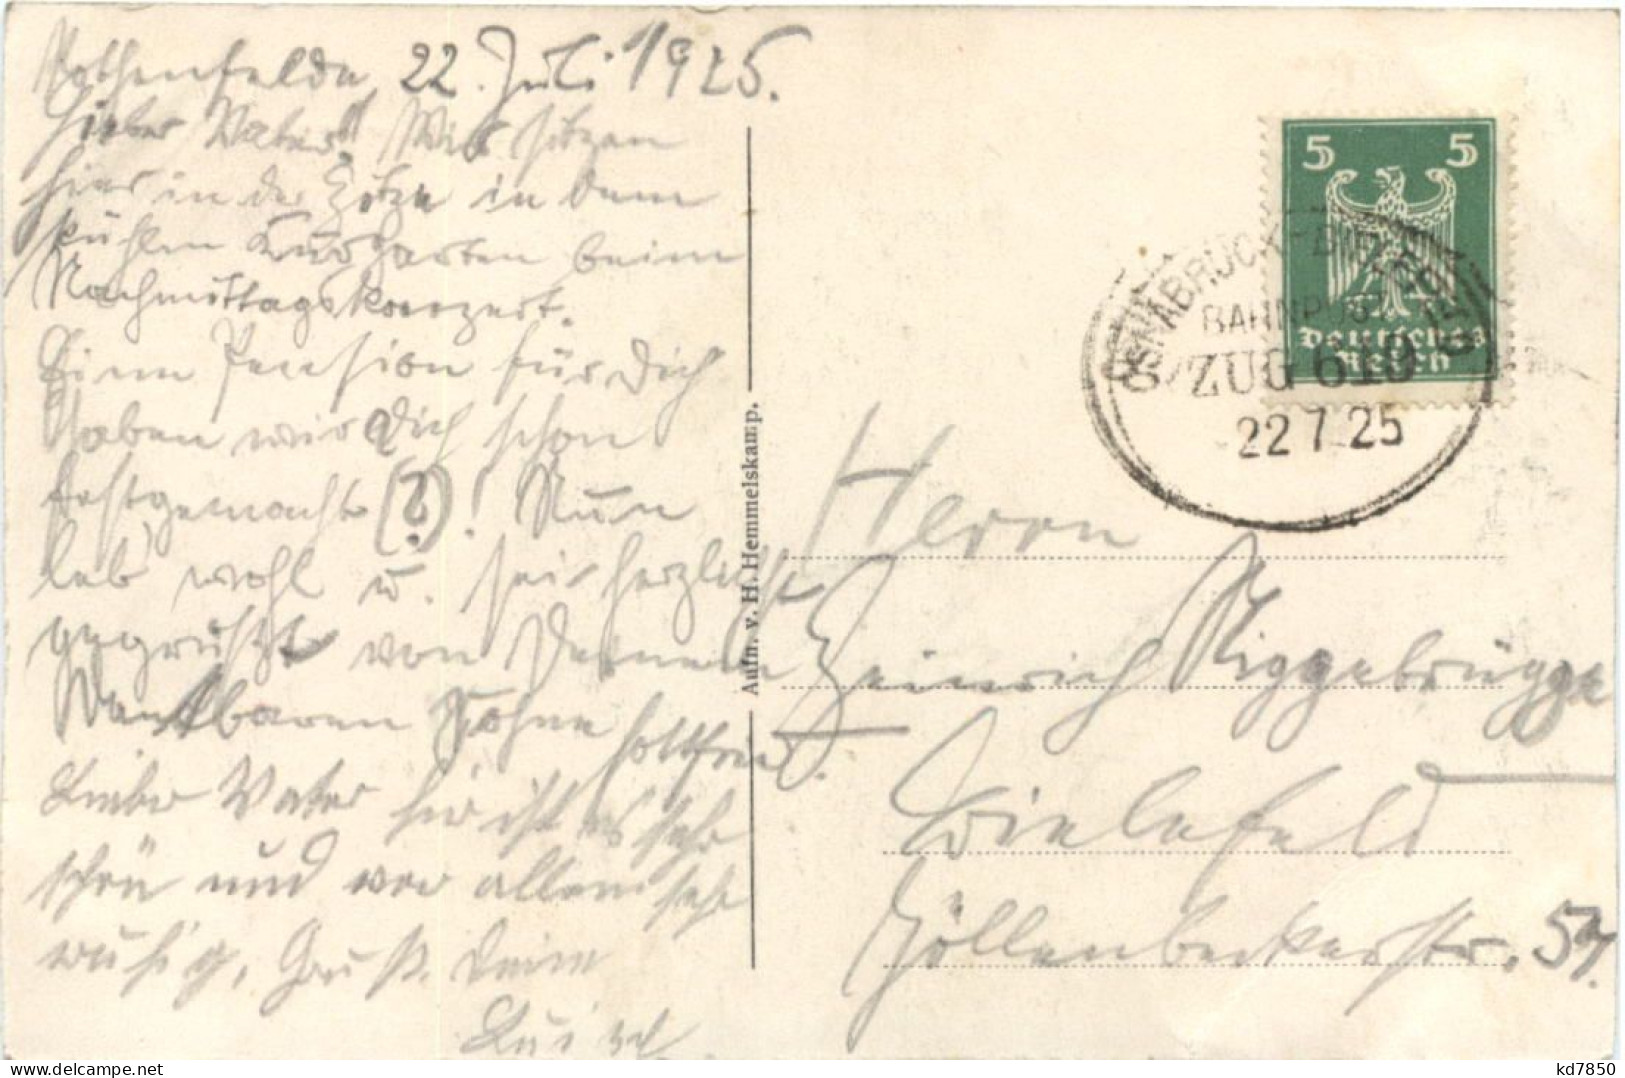 Rothenfelde, 22. Juli 1925.
Lieber Vater! Wir sitzen
hier in der Hitze in dem
kühlen Kurgarten beim
Nachmittagskonzert.
Eine Pension für Dich
haben wir Dich schon
festgemacht (?)! Nun
leb' wohl u. sei herzlichst
gegrüßt von Deinem
dankbaren Sohne
Gottfried.
Lieber Vater hier ist es sehr
schön und vor allem sehr
ruhig. Gruß Deine
Luise
Aufn. v. H. Hemmelskamp.
5 5
Deutsches
Reich
OSNABRÜCK-
BAHNPOST
ZUG 619
22 7 25
Herrn
Heinrich Niggebrügge
Bielefeld
Göllenbeckerstr. 57.
kd7850